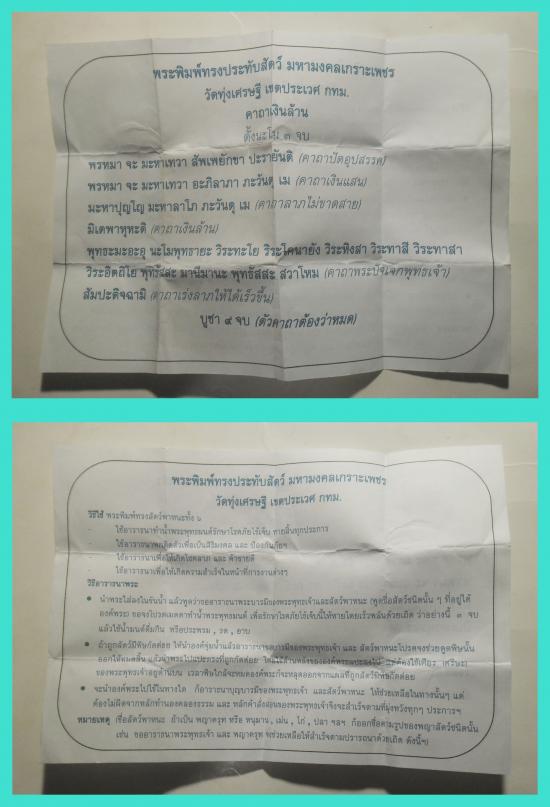 พระพิมพ์ทรงประทับสัตว์ มหามงคลเกราะเพชร
วัดทุ่งเศรษฐี เขตประเวศ กทม.
คาถาเงินล้าน
ตั้งนะโม ๓ จบ
พรหมา จะ มะหาเทวา สัพเพยักขา ปะรายันติ (คาถาปัดอุปสรรค)
พรหมา จะ มะหาเทวา อะภิลาภา ภะวันตุ เม (คาถาเงินแสน)
มะหาปุญโญ มะหาลาโภ ภะวันตุ เม (คาถาลาภไม่ขาดสาย)
มิเตพาหุหะติ (คาถาเงินล้าน)
พุทธะมะอะอุ นะโมพุทธายะ วิระทะโย วิระโคนายัง วิระหิงสา วิระทาสี วิระทาสา
วิระอิตถิโย พุทธัสสะ มานีมานะ พุทธัสสะ สวาโหม (คาถาพระปัจเจกพุทธเจ้า)
สัมปะติจฉามิ (คาถาเร่งลาภให้ได้เร็วขึ้น)
บูชา ๙ จบ (ตัวคาถาต้องว่าหมด)
พระพิมพ์ทรงประทับสัตว์ มหามงคลเกราะเพชร
วัดทุ่งเศรษฐี เขตประเวศ กทม.
วิธีใช้ พระพิมพ์ทรงสัตว์พาหนะทั้ง ๖
- ใช้อาราธนาทำน้ำพระพุทธมนต์รักษาโรคภัยไข้เจ็บ หายสิ้นทุกประการ
- ใช้อาราธนาพกติดตัวเพื่อเป็นสิริมงคล และ ป้องกันภัยฯ
- ใช้อาราธนาเพื่อให้เกิดโชคลาภ และ ค้าขายดี
- ใช้อาราธนาเพื่อให้เกิดความสำเร็จในหน้าที่การงานต่างๆ
วิธีอาราธนาพระ
● นำพระใส่ลงในขันน้ำ แล้วพูดว่าขออาราธนาพระบารมีของพระพุทธเจ้าและสัตว์พาหนะ (พูดชื่อสัตว์ชนิดนั้น ๆ ที่อยู่ใต้
องค์พระ) ขอจงโปรดเมตตาทำน้ำพระพุทธมนต์ เพื่อรักษาโรคภัยไข้เจ็บนี้ให้หายโดยเร็วพลันด้วยเถิด ว่าอย่างนี้ ๓ จบ
แล้วใช้น้ำมนต์ดื่มกิน หรือประพรม , รด , อาบ
● ถ้าถูกสัตว์มีพิษกัดต่อย ให้นำองค์จุ่มน้ำแล้วอาราธนาขอบารมีของพระพุทธเจ้า และ สัตว์พาหนะโปรดจงช่วยดูดพิษนั้น
ออกให้หมดสิ้น แล้วนำพระไปแปะตรงที่ถูกกัดต่อย โดยใช้ด้านหลังขององค์พระแปะลงไป และต้องให้เศียร (ศรีษะ)
ของพระพุทธเจ้าอยู่ด้านบน เวลาพิษใกล้จะหมดองค์พระก็จะหลุดออกจากแผลที่ถูกสัตว์พิษกัดต่อย
● จะนำองค์พระไปใช้ในทางใด ก็อาราธนาบุญบารมีของพระพุทธเจ้า และสัตว์พาหนะ ให้ช่วยเหลือในทางนั้นๆ แต่
ต้องไม่ผิดจากหลักทำนองคลองธรรม และ หลักคำสั่งสอนของพระพุทธเจ้าจึงจะสำเร็จตามที่มุ่งหวังทุกๆ ประการฯ
หมายเหตุ (ชื่อสัตว์พาหนะ ถ้าเป็น พญาครุฑ หรือ หนุมาน , เม่น , ไก่ , ปลา ฯลฯ ก็ออกชื่อตามรูปของพญาสัตว์ชนิดนั้น
เช่น ขออาราธนาพระพุทธเจ้า และ พญาครุฑ จงช่วยเหลือให้สำเร็จตามปรารถนาด้วยเถิด ดังนี้ฯ)